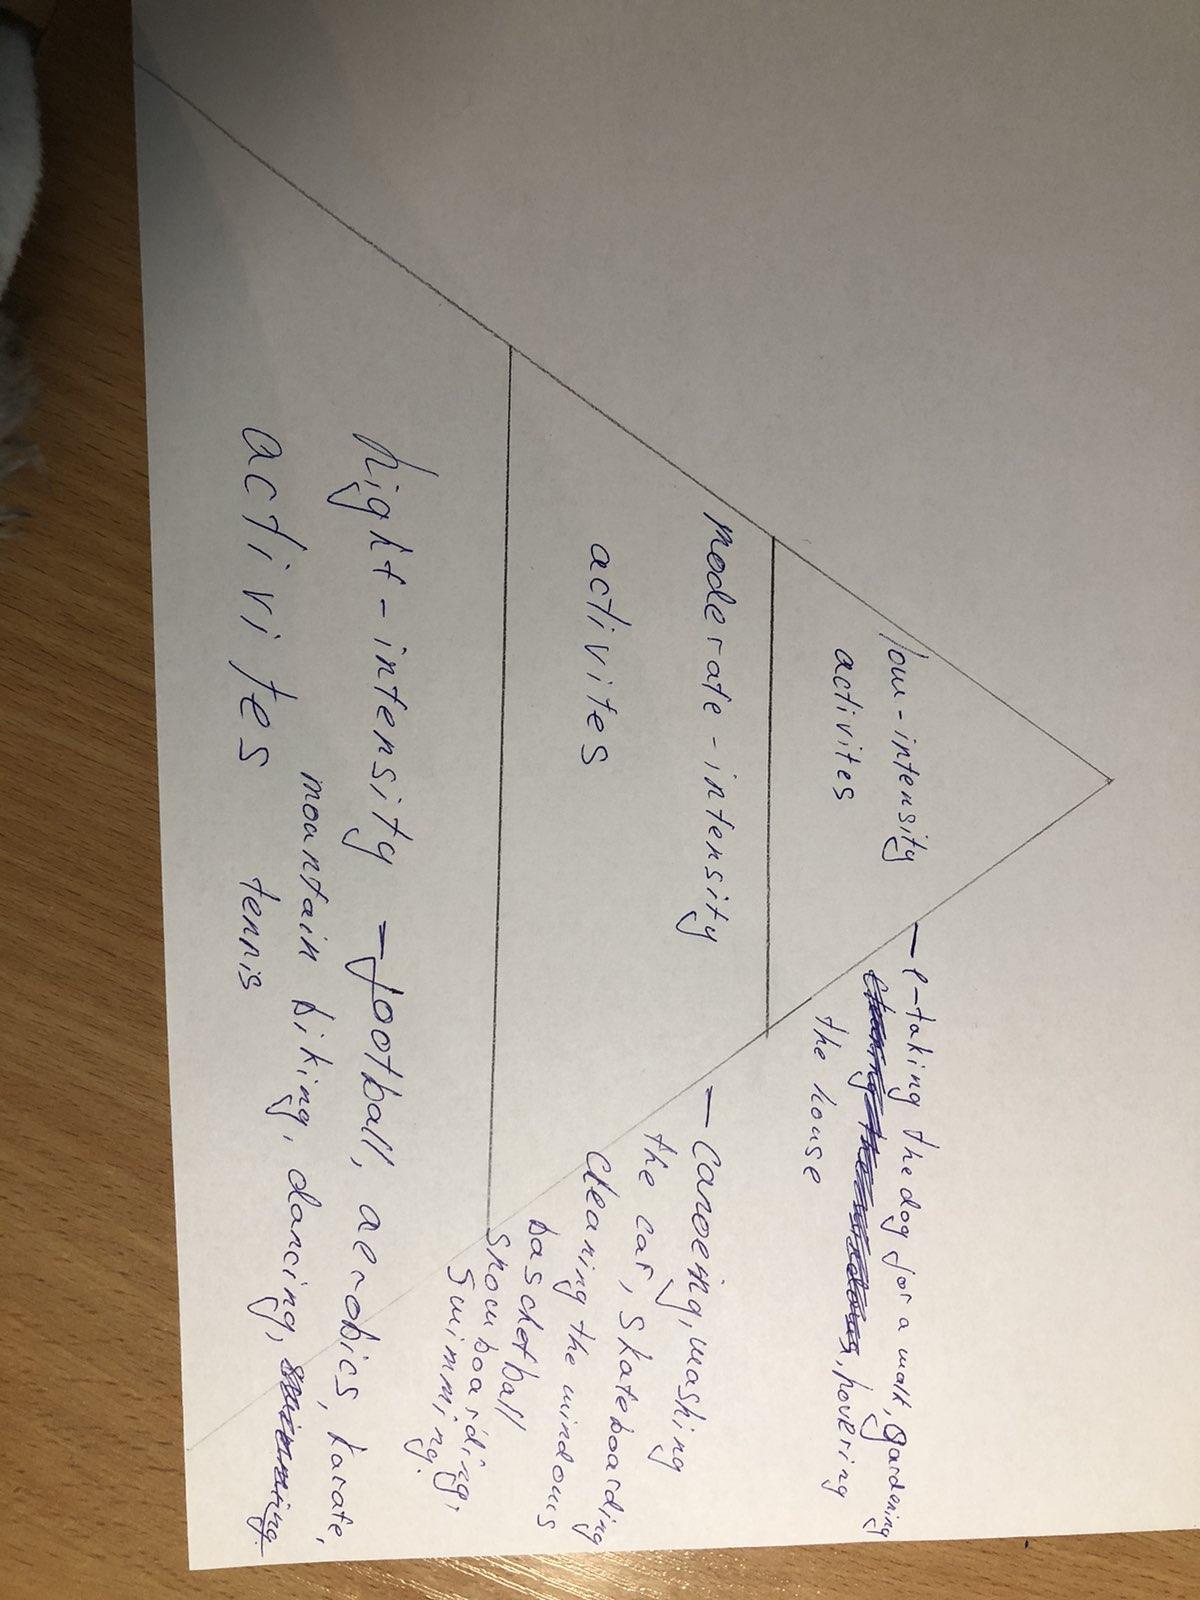 low-intensity
activites
— l-taking the dog for a walk, gardening
, hovering
the house
moderate-intensity
activites
— canoeing, washing
the car, skateboarding
cleaning the windows
baschetball
snowboarding,
swimming.
hight-intensity
activites
— football, aerobics, karate,
mountain biking, dancing, swimming.
tennis